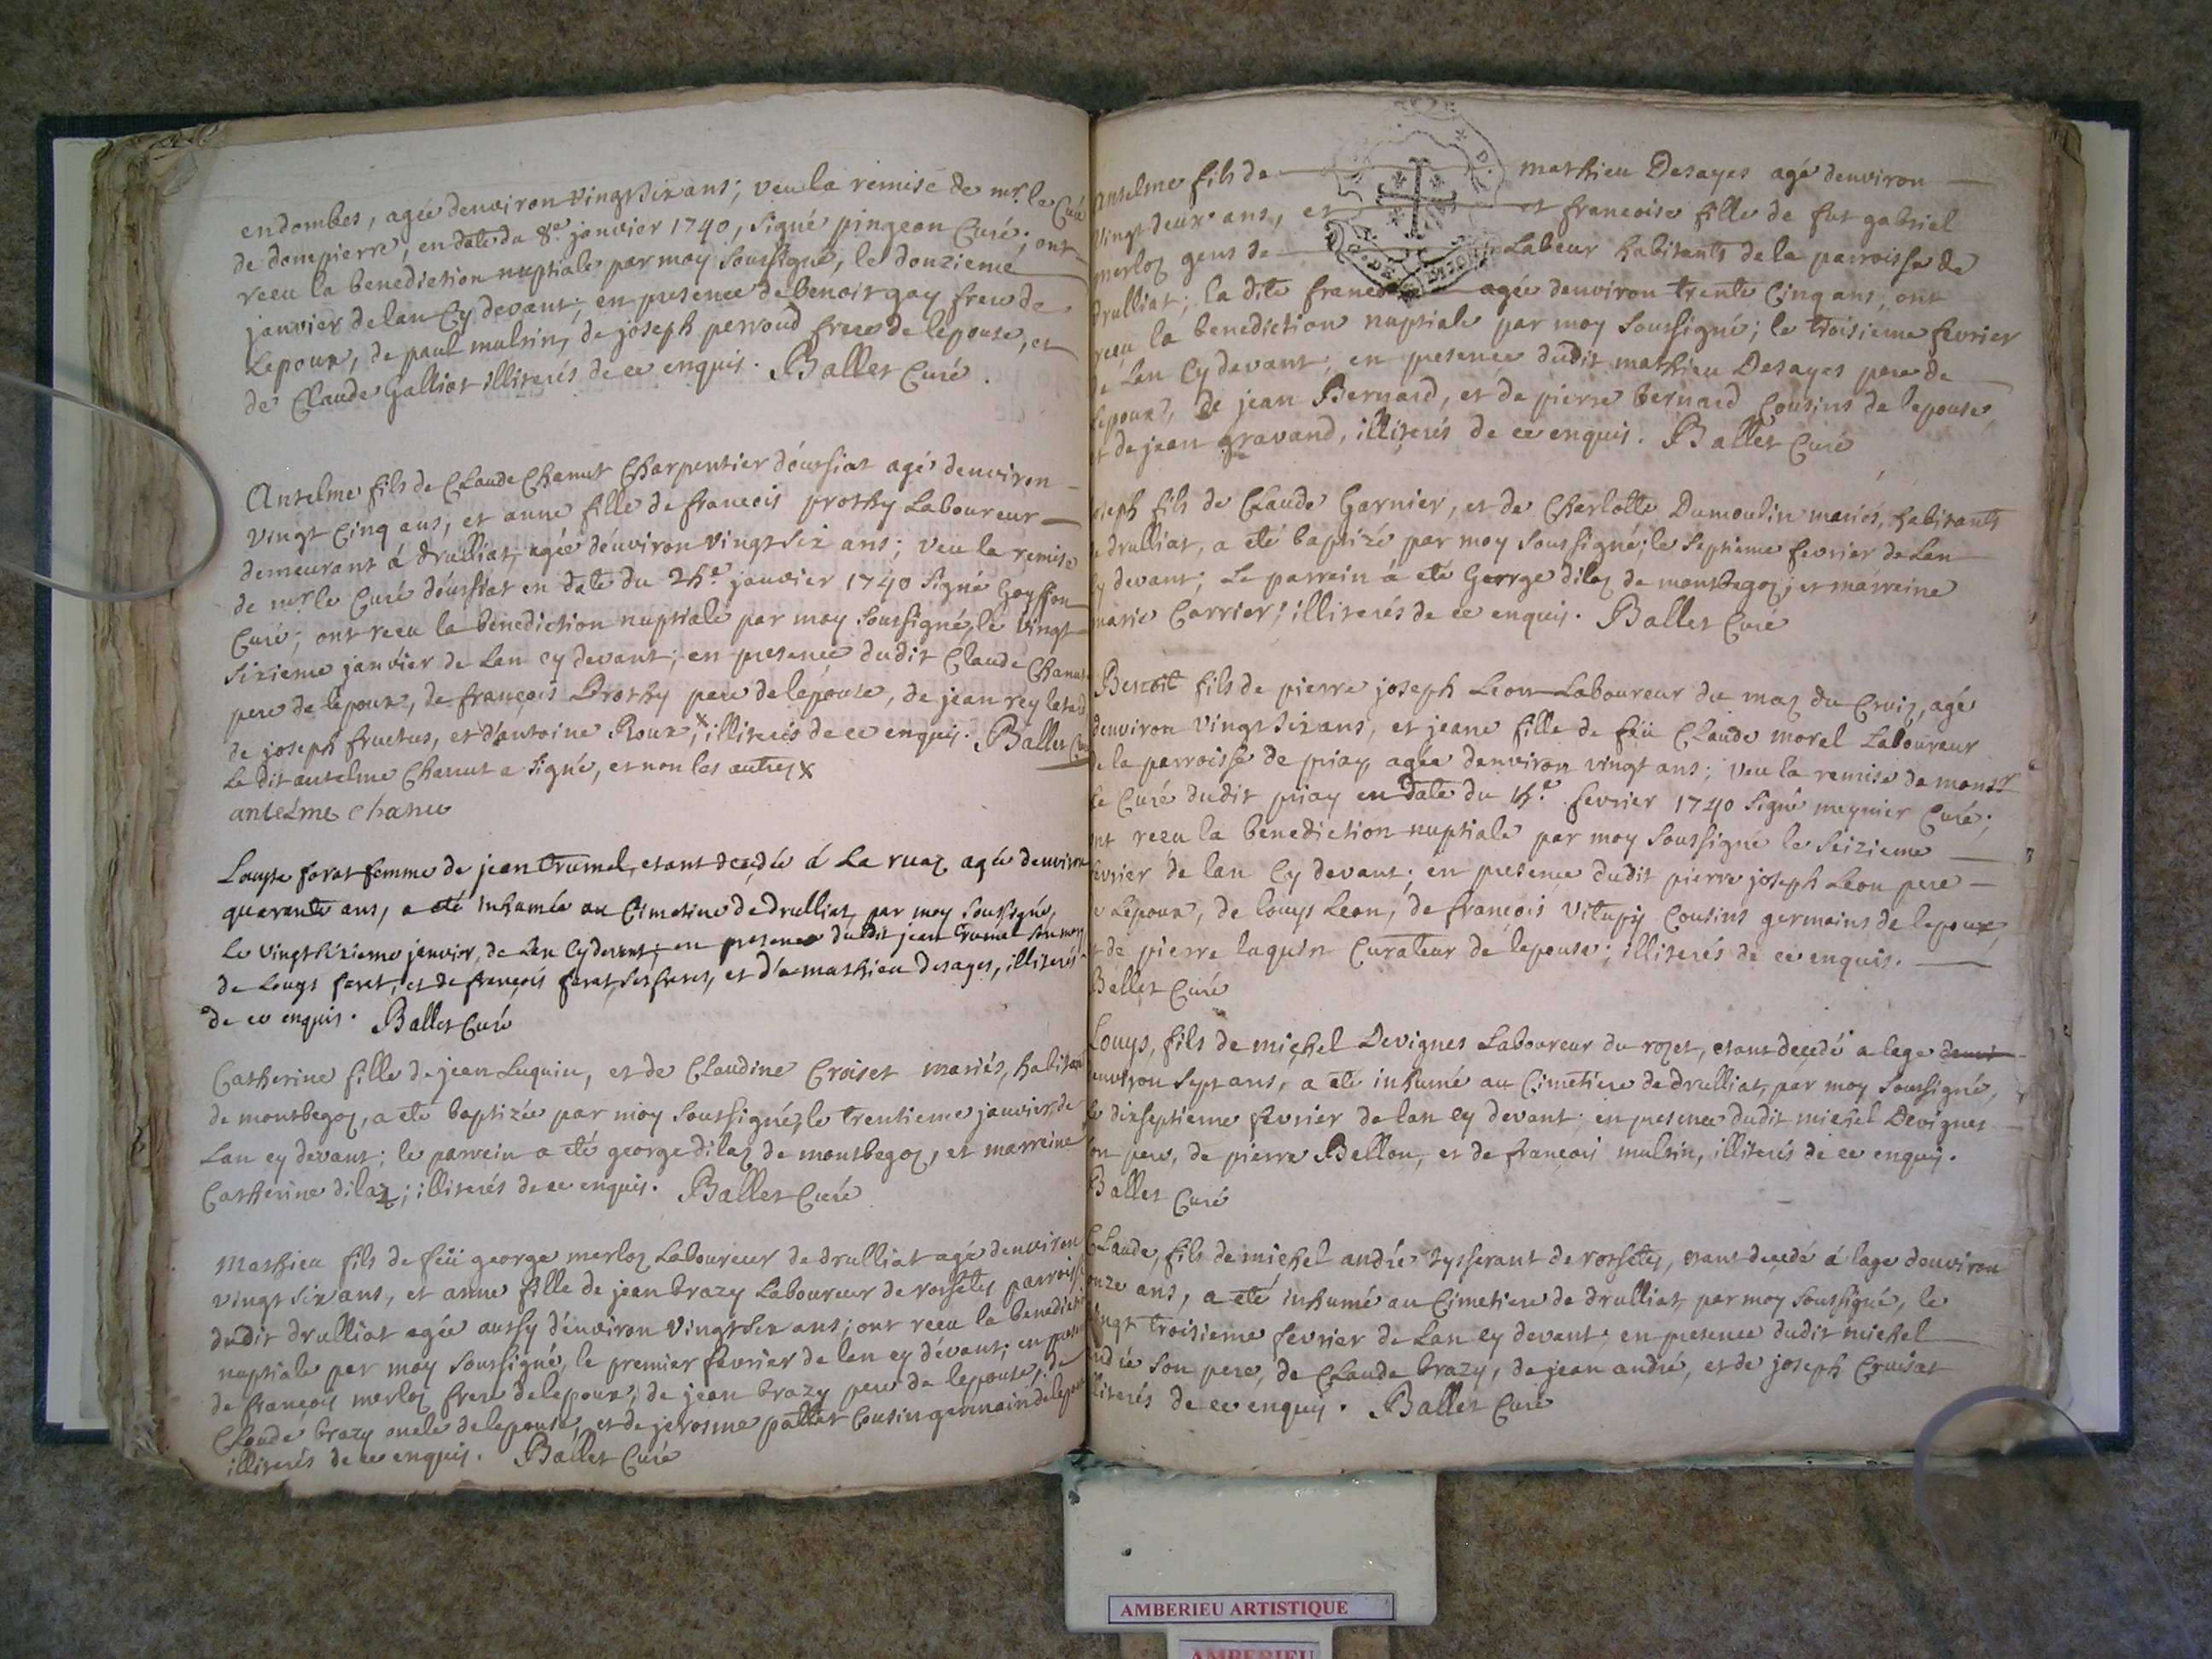 en dombes, agée denviron vingt six ans; veu la remise de mr. le Curé
de dompierre, en date du 8e. janvier 1740, signé pingeon Curé; ont
receu la benediction nuptiale par moy soussigné, le douzieme
janvier de lan cy devant; en presence de benoit gay frere de
Lepoux, de paul mulsin, de joseph perroud frere de lepouse, et
de Claude Galliot illiterés de ce enquis. Ballet Curé.
Anselme fils de Claude Chanut Charpentier doussiat agé denviron
vingt Cinq ans, et anne fille de francois prothy Laboureur
demeurant á drulliat, agée denviron vingt six ans; veu la remise
de mr. le Curé doussiat en date du janvier 1740 signé Goyffon
Curé; ont receu la benediction nuptiale par moy soussigné, le vingt
sixieme janvier de Lan cy devant; en presence dudit Claude Chanut
pere de lepoux, de françois prothy pere de lepouse, de jean rey
de joseph fructus, et dantoine Roux, x illiterés de ce enquis. Ballet
Le dit anselme Chanut a signé, et non les autres x
antelme chanu
Louyse forat femme de jean trumel, etant decedée á La ruaz agée denviron
quarante ans, a eté inhumée au Cimetiere de drulliat, par moy soussigné,
Le vingt sixieme janvier, de Lan cy devant; en presence dudit jean trumel son mary
de Louys forat, et de françois forat, ses freres, et de mathieu desayes, illiterés
de ce enquis. Ballet Curé
Catherine fille de jean Luquin, et de Claudine Croiset mariés, habitants
de monbegoz, a eté baptizée par moy soussigné, le trentieme janvier de
Lan cy devant; le parrein a eté george dilaz de monbegoz, et marreine
Catherine dilaz; illiterés de ce enquis. Ballet Curé
Mathieu fils de feü george merloz Laboureur de drulliat agé denviron
vingt six ans, et anne fille de jean brazy Laboureur de rossetes parroisse
dudit drulliat agée aussy denviron vingt six ans; ont receu la benediction
nuptiale par moy soussigné, le premier fevrier de lan cy devant; en presence
de françois merloz frere de lepoux, de jean brazy pere de lepouse, de
Claude brazy oncle de lepouse, et de jerosme pattet Cousin germain de
illiterés de ce enquis. Ballet Curé
Anselme fils de mathieu Desayes agé denviron
vingt deux ans, et et francoise fille de fut gabriel
merloz gens de Labeur habitants de la parroisse de
drulliat; la dite agée denviron trente Cinq ans, ont
receu la benediction nuptiale par moy soussigné; le troisieme fevrier
de Lan cy devant; en presence dudit mathieu Desayes pere de
lepoux, de jean Bernard, et de pierre bernard Cousins de lepouse,
et de jean gravand, illiterés de ce enquis. Ballet Curé
joseph fils de Claude Garnier, et de Charlotte Dumoulin mariés, habitants
de drulliat, a eté baptizé par moy soussigné; le septieme fevrier de Lan
cy devant; Le parrein á eté George dilaz de monbegoz; et marreine
marie Carrier; illiterés de ce enquis. Ballet Curé
Benoit fils de pierre joseph Leon Laboureur du maz du Croiz, agé
denviron vingt six ans, et jeane fille de feü Claude morel Laboureur
de la parroisse de priay agée denviron vingt ans; veu la remise de monsr
le Curé dudit priay en date du fevrier 1740 signé meynier Curé;
ont receu la benediction nuptiale par moy soussigné le seizieme
fevrier de lan cy devant; en presence dudit pierre joseph Leon pere
de Lepoux, de louys Leon, de françois Cousins germains de lepoux,
et de pierre luquin Curateur de lepouse; illiterés de ce enquis.
Ballet Curé
Louys, fils de michel Devignes Laboureur du rozet, etant decedé a lage
environ sept ans, a eté inhumé au Cimetiere de drulliat, par moy soussigné,
le dixseptieme fevrier de lan cy devant; en presence dudit michel Devignes
son pere, de pierre Bellon, et de françois mulsin, illiterés de ce enquis.
Ballet Curé
Claude, fils de michel andré tysserant de rossetes, etant decedé á lage denviron
onze ans, a eté inhumé au Cimetiere de drulliat, par moy soussigné, le
vingt troisieme fevrier de Lan cy devant; en presence dudit michel
andré son pere, de Claude brazy, de jean andré, et de joseph Cruisat
illiterés de ce enquis. Ballet Curé
AMBERIEU ARTISTIQUE
AMBERIEU